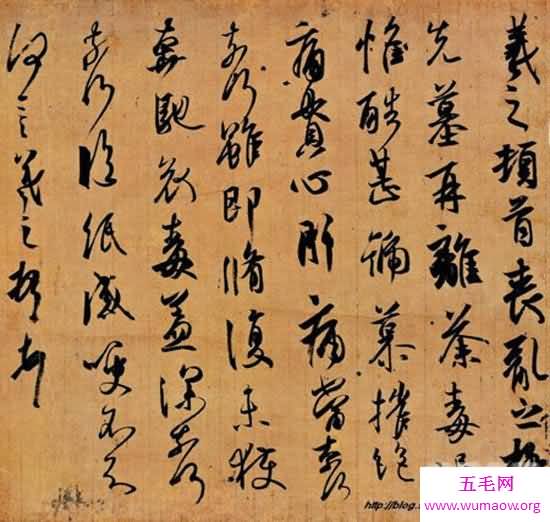 羲之頓首喪亂之極
先墓再離荼毒追
惟酷甚號慕摧絕
痛貫心肝痛當奈何
奈何雖即脩復未獲
奔馳哀毒益深奈何
奈何臨紙感哽不知
何言羲之頓首
http://blog.
五毛网
www.wumaow.org